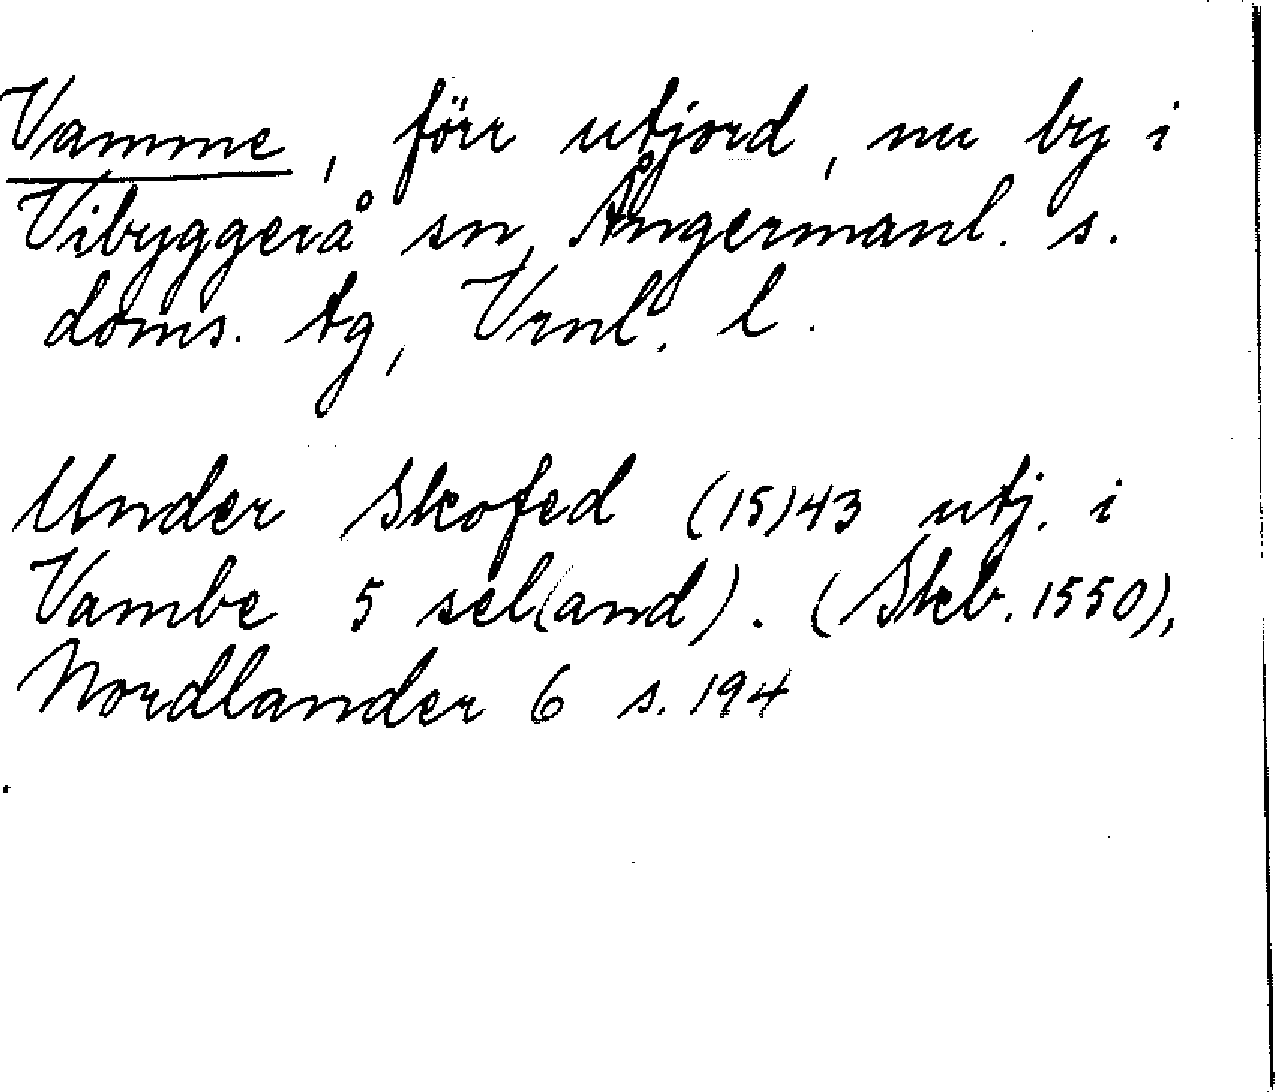 Vamme, förr utjord, nu by i
Vibyggerå sn, Ångermanl. s.
doms. tg, Vrnl. l.
Under Skofed (15)43 utj. i
Vambe 5 sel(and). (Skb. 1550),
Nordlander 6 s. 194